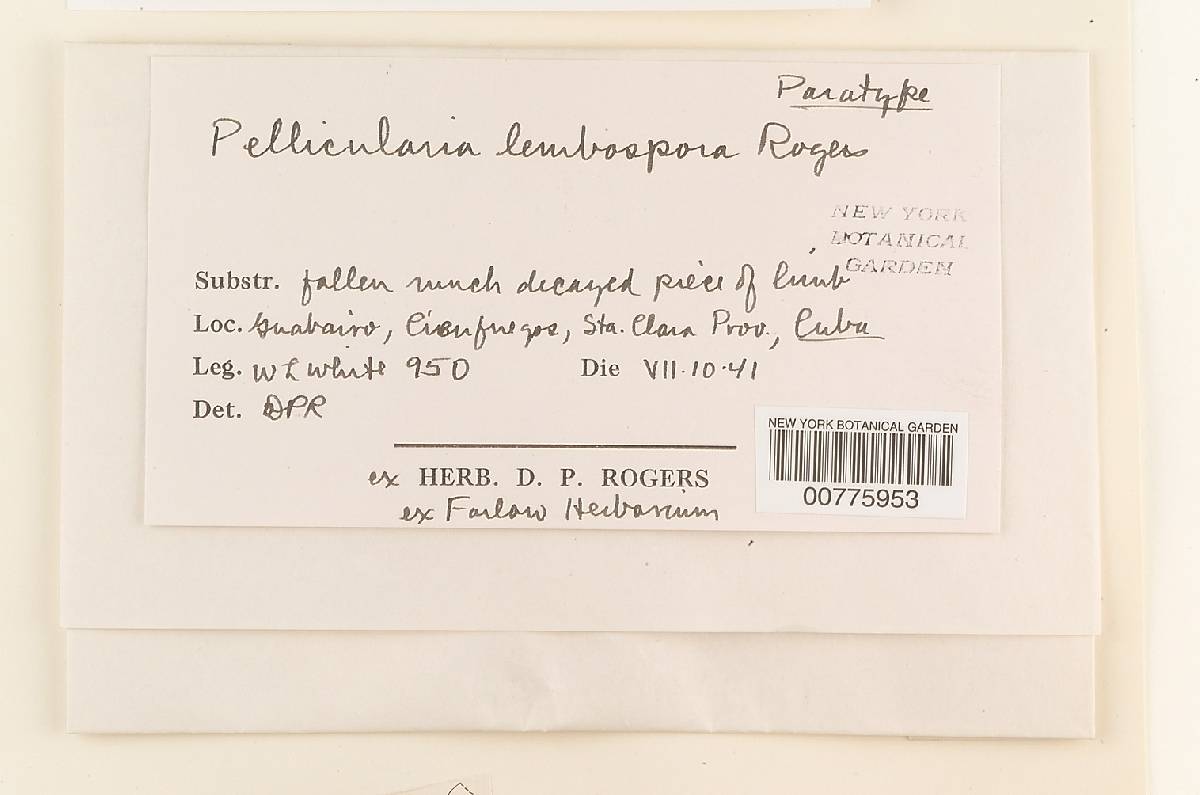 Paratype
Pellicularia lembospora Rogers
NEW YORK
BOTANICAL
GARDEN
Substr. fallen much decayed piece of limb
Loc. Guabairo, Cienfuegos, Sta. Clara Prov., Cuba
Leg. W L White 950 Die VII.10.41
Det. DPR
ex HERB. D. P. ROGERS
ex Farlow Herbarium
NEW YORK BOTANICAL GARDEN
00775953